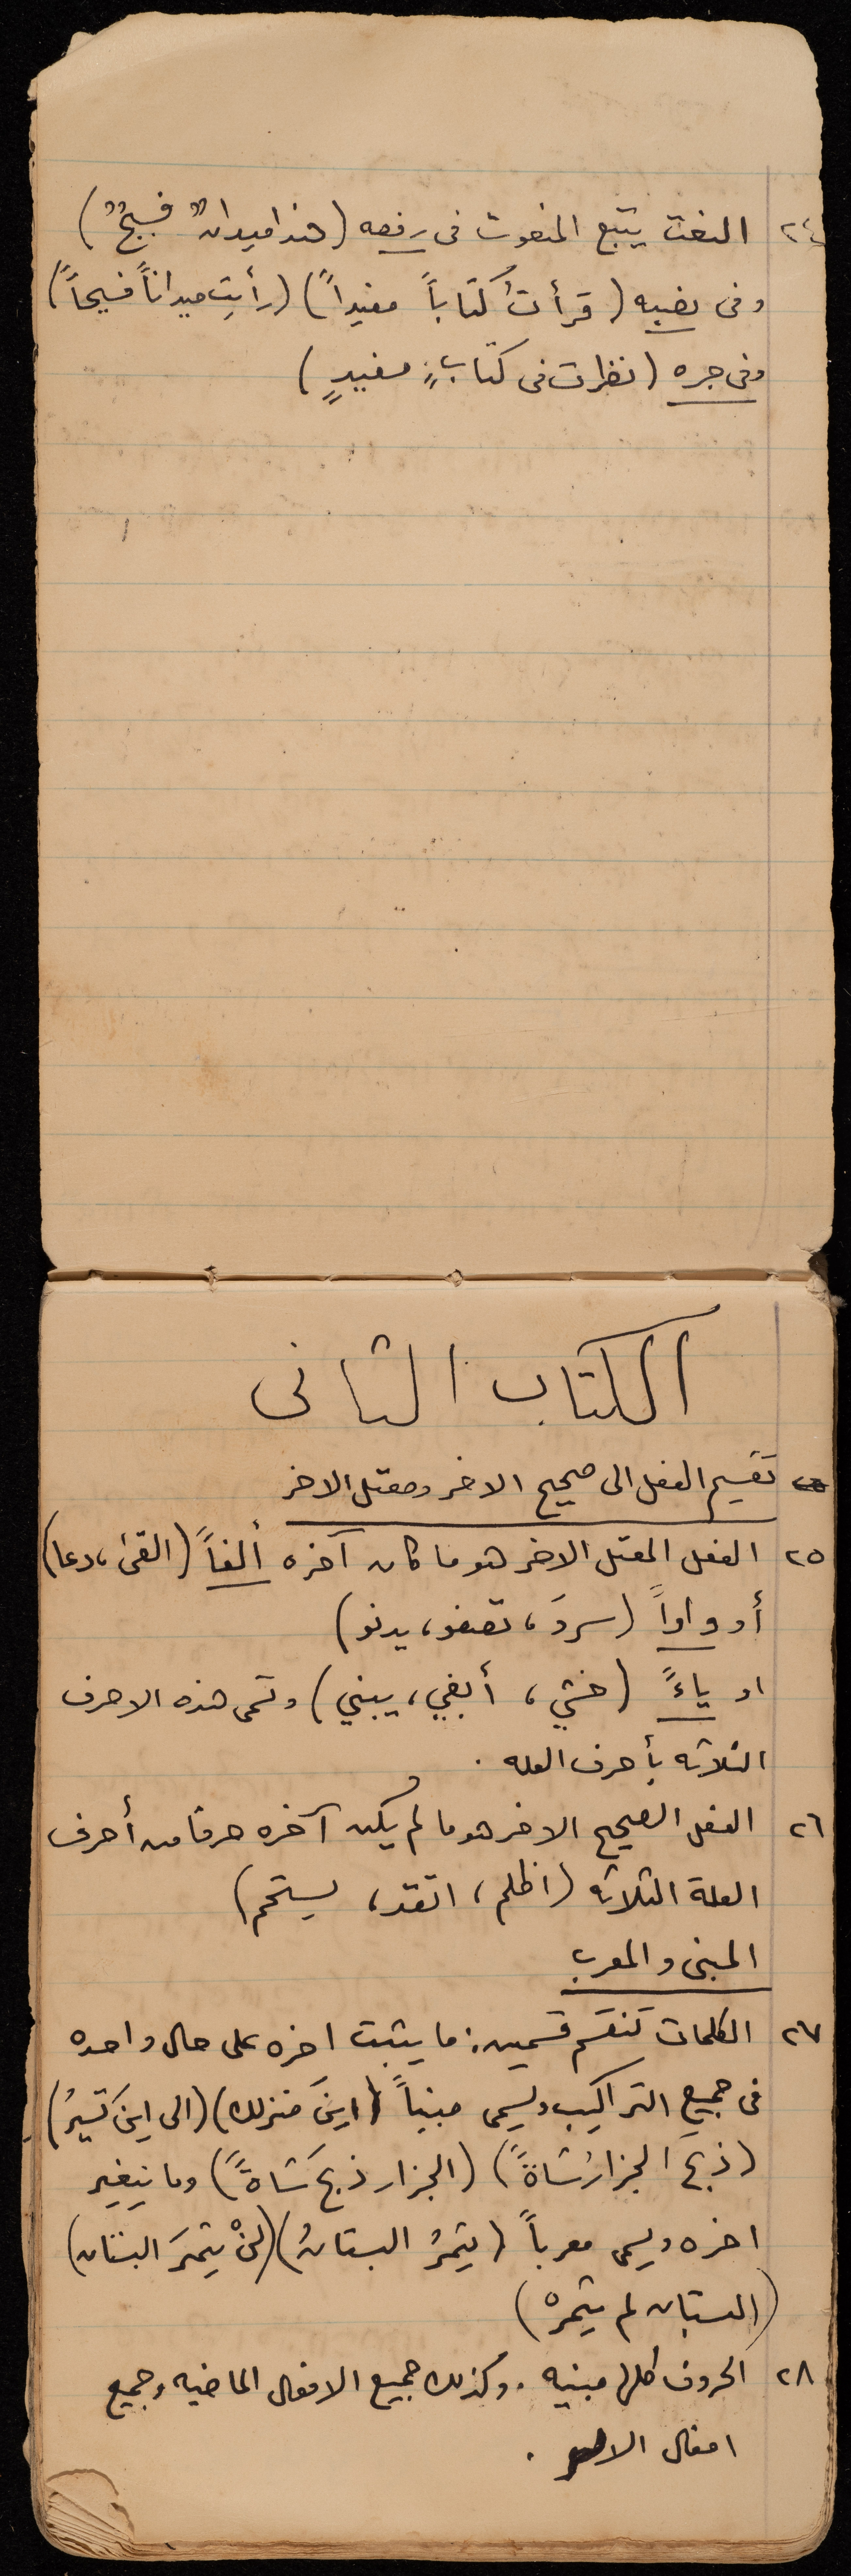 ٢٤ النعت يتبع المنعوت فى رفعه (هذا ميدانٌ فسيحٌ)
وفى نصبه (قرأتُ كتاباً مفيداً) (رأيت ميداناً فسيحاً)
وفى جره (نظرات فى كتابٍ مفيدٍ)
الكتاب الثانى
تقسيم الفعل الى صحيح الاخر ومعتل الاخر
٢٥ الفعل المعتل الاخر هو ما كان آخره ألفاً (القى، دعا)
أو واواً (سروَ، تصفو، يدنو)
او ياءً (خشي، أبغي، يبني) وتسمى هذه الاحرف
الثلاثه بأحرف العله.
٢٦ الفعل الصحيح الاخر هو ما لم يكن آخره حرفا من أحرف
العلة الثلاثه (اظلم، اتقد، يستحم)
المبنى والمعرب
٢٧ الكلمات تنقسم قسمين: ما يثبت اخره على حال واحده
فى جميع التراكيب ويسمى مبنياً (اينَ منزلك) (الى اينَ تسيرُ)
(ذبحَ الجزارُ شاةً) (الجزار ذبحَ شاةً) وما يتغير
اخره ويسمى معرباً (يثمرُ البستانُ) (لنْ يثمرَ البستان)
(البستان لم يثمرْ)
٢٨ الحروف كلها مبنيه. وكذلك جميع الافعال الماضيه وجميع
افعال الامر.